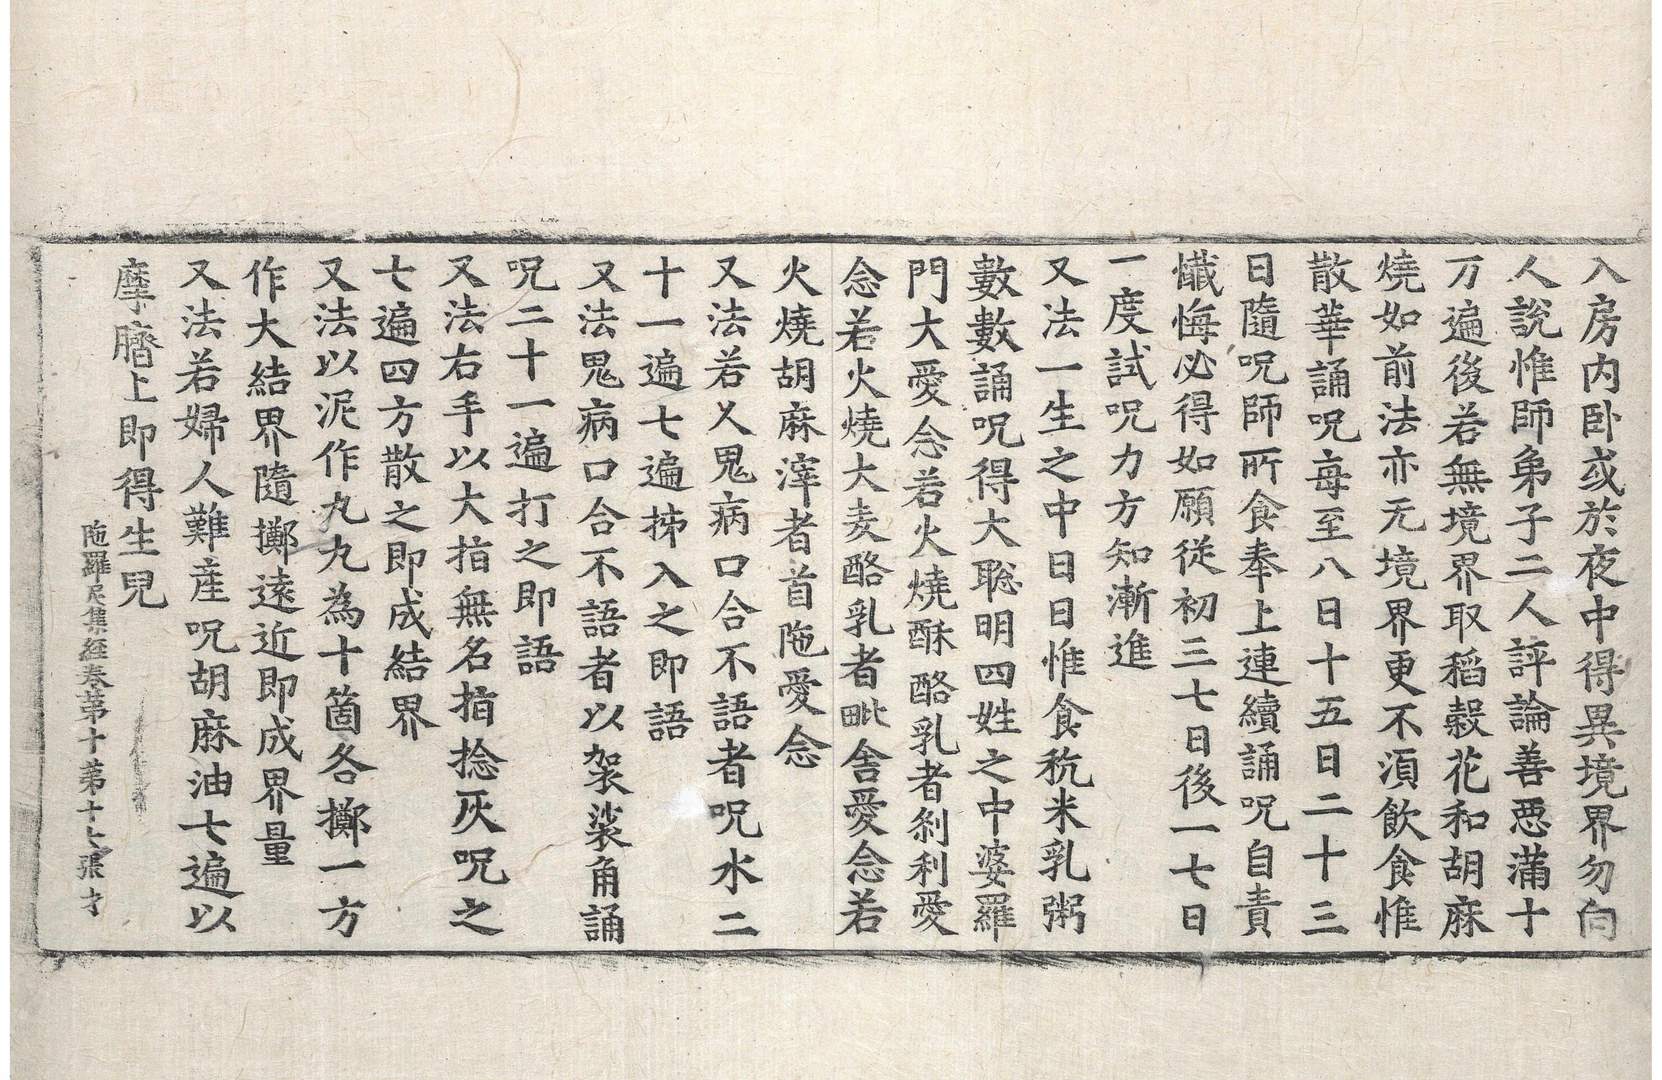 入房內卧或於夜中得異境界勿向
人說惟師弟子二人評論善惡滿十
万遍後若無境界取稻穀花和胡麻
燒如前法亦无境界更不湏飲食惟
散華誦呪每至八日十五日二十三
日隨呪師所食奉上連續誦呪自責
懺悔必得如願從初三七日後一七日
一度試呪力方知漸進
又法一生之中日日惟食秔米乳粥
數數誦呪得大聡明四姓之中婆羅
門大愛念若火燒酥酪乳者刹利愛
念若火燒大麦酪乳者毗舍愛念若
火燒胡麻滓者首陁愛念
又法若人鬼病口合不語者呪水二
十一遍七遍拂入之即語
又法鬼病口合不語者以袈裟角誦
呪二十一遍打之即語
又法右手以大指無名指捻灰呪之
七遍四方散之即成結界
又法以泥作丸丸為十箇各擲一方
作大結界隨擲遠近即成界量
又法若婦人難産呪胡麻油七遍以
摩臍上即得生兒
陁羅尼集經卷第十第十七張才